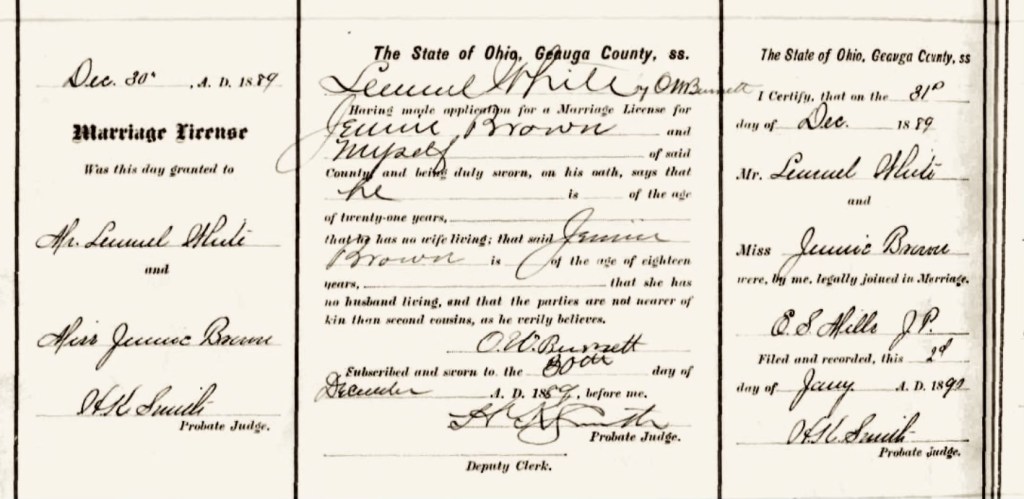 Dec. 30th, A. D. 1889
Marriage License
Was this day granted to
Mr. Lemuel White
and
Miss Jennie Brown
H K Smith
Probate Judge.
The State of Ohio, Geauga County, ss.
Lemuel White by O W Burnett
Having made application for a Marriage License for
Jennie Brown and
Myself of said
County and being duly sworn, on his oath, says that
he is of the age
of twenty-one years,
that he has no wife living; that said Jennie
Brown is of the age of eighteen
years, that she has
no husband living, and that the parties are not nearer of
kin than second cousins, as he verily believes.
O. W. Burnett
Subscribed and sworn to the 30th day of
December A. D. 1889, before me.
H K Smith
Probate Judge.
Deputy Clerk.
The State of Ohio, Geauga County, ss
I Certify, that on the 31st
day of Dec. 1889
Mr. Lemuel White
and
Miss Jennie Brown
were, by me, legally joined in Marriage.
E. S Mills J P.
Filed and recorded, this 2d
day of Jany A. D. 1890
H.K. Smith
Probate Judge.